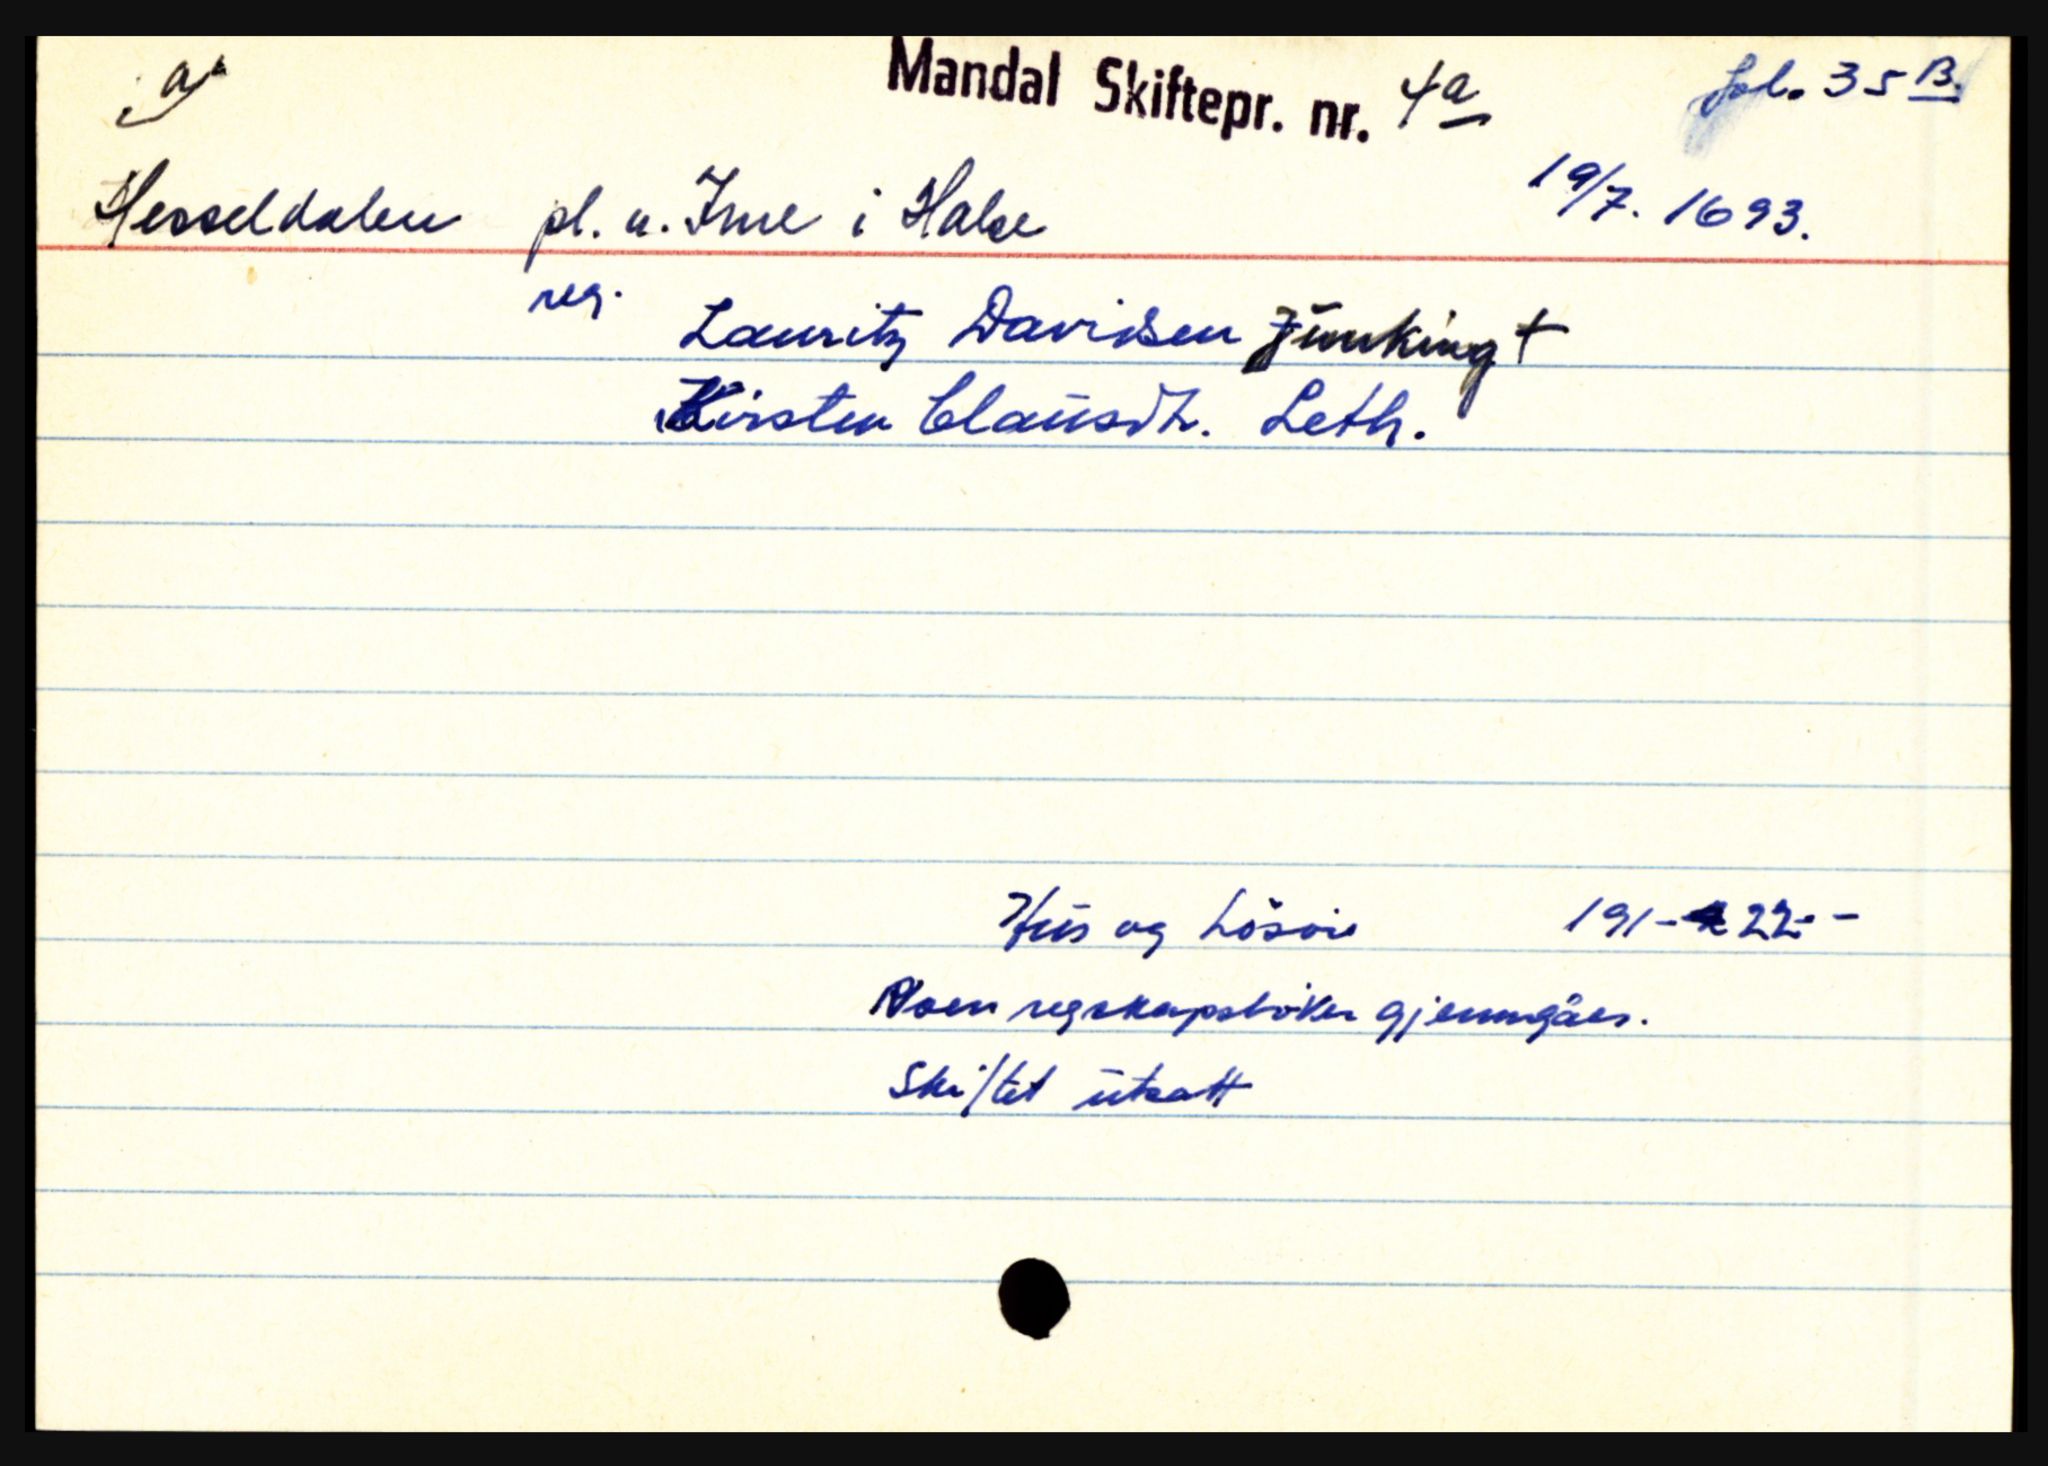 a
Mandal Skiftepr. nr. 4a fol. 35 B.
Hesseldalen pl. u. Ime i Halse 19/7. 1693.
reg. Lauritz Davidsen Jŭnking †
Kirsten Claŭsdtr. Leth.
Hŭs og Lösöre 191-22--
Noen regskapsböker gjenngåes.
Skiftet ŭtsatt